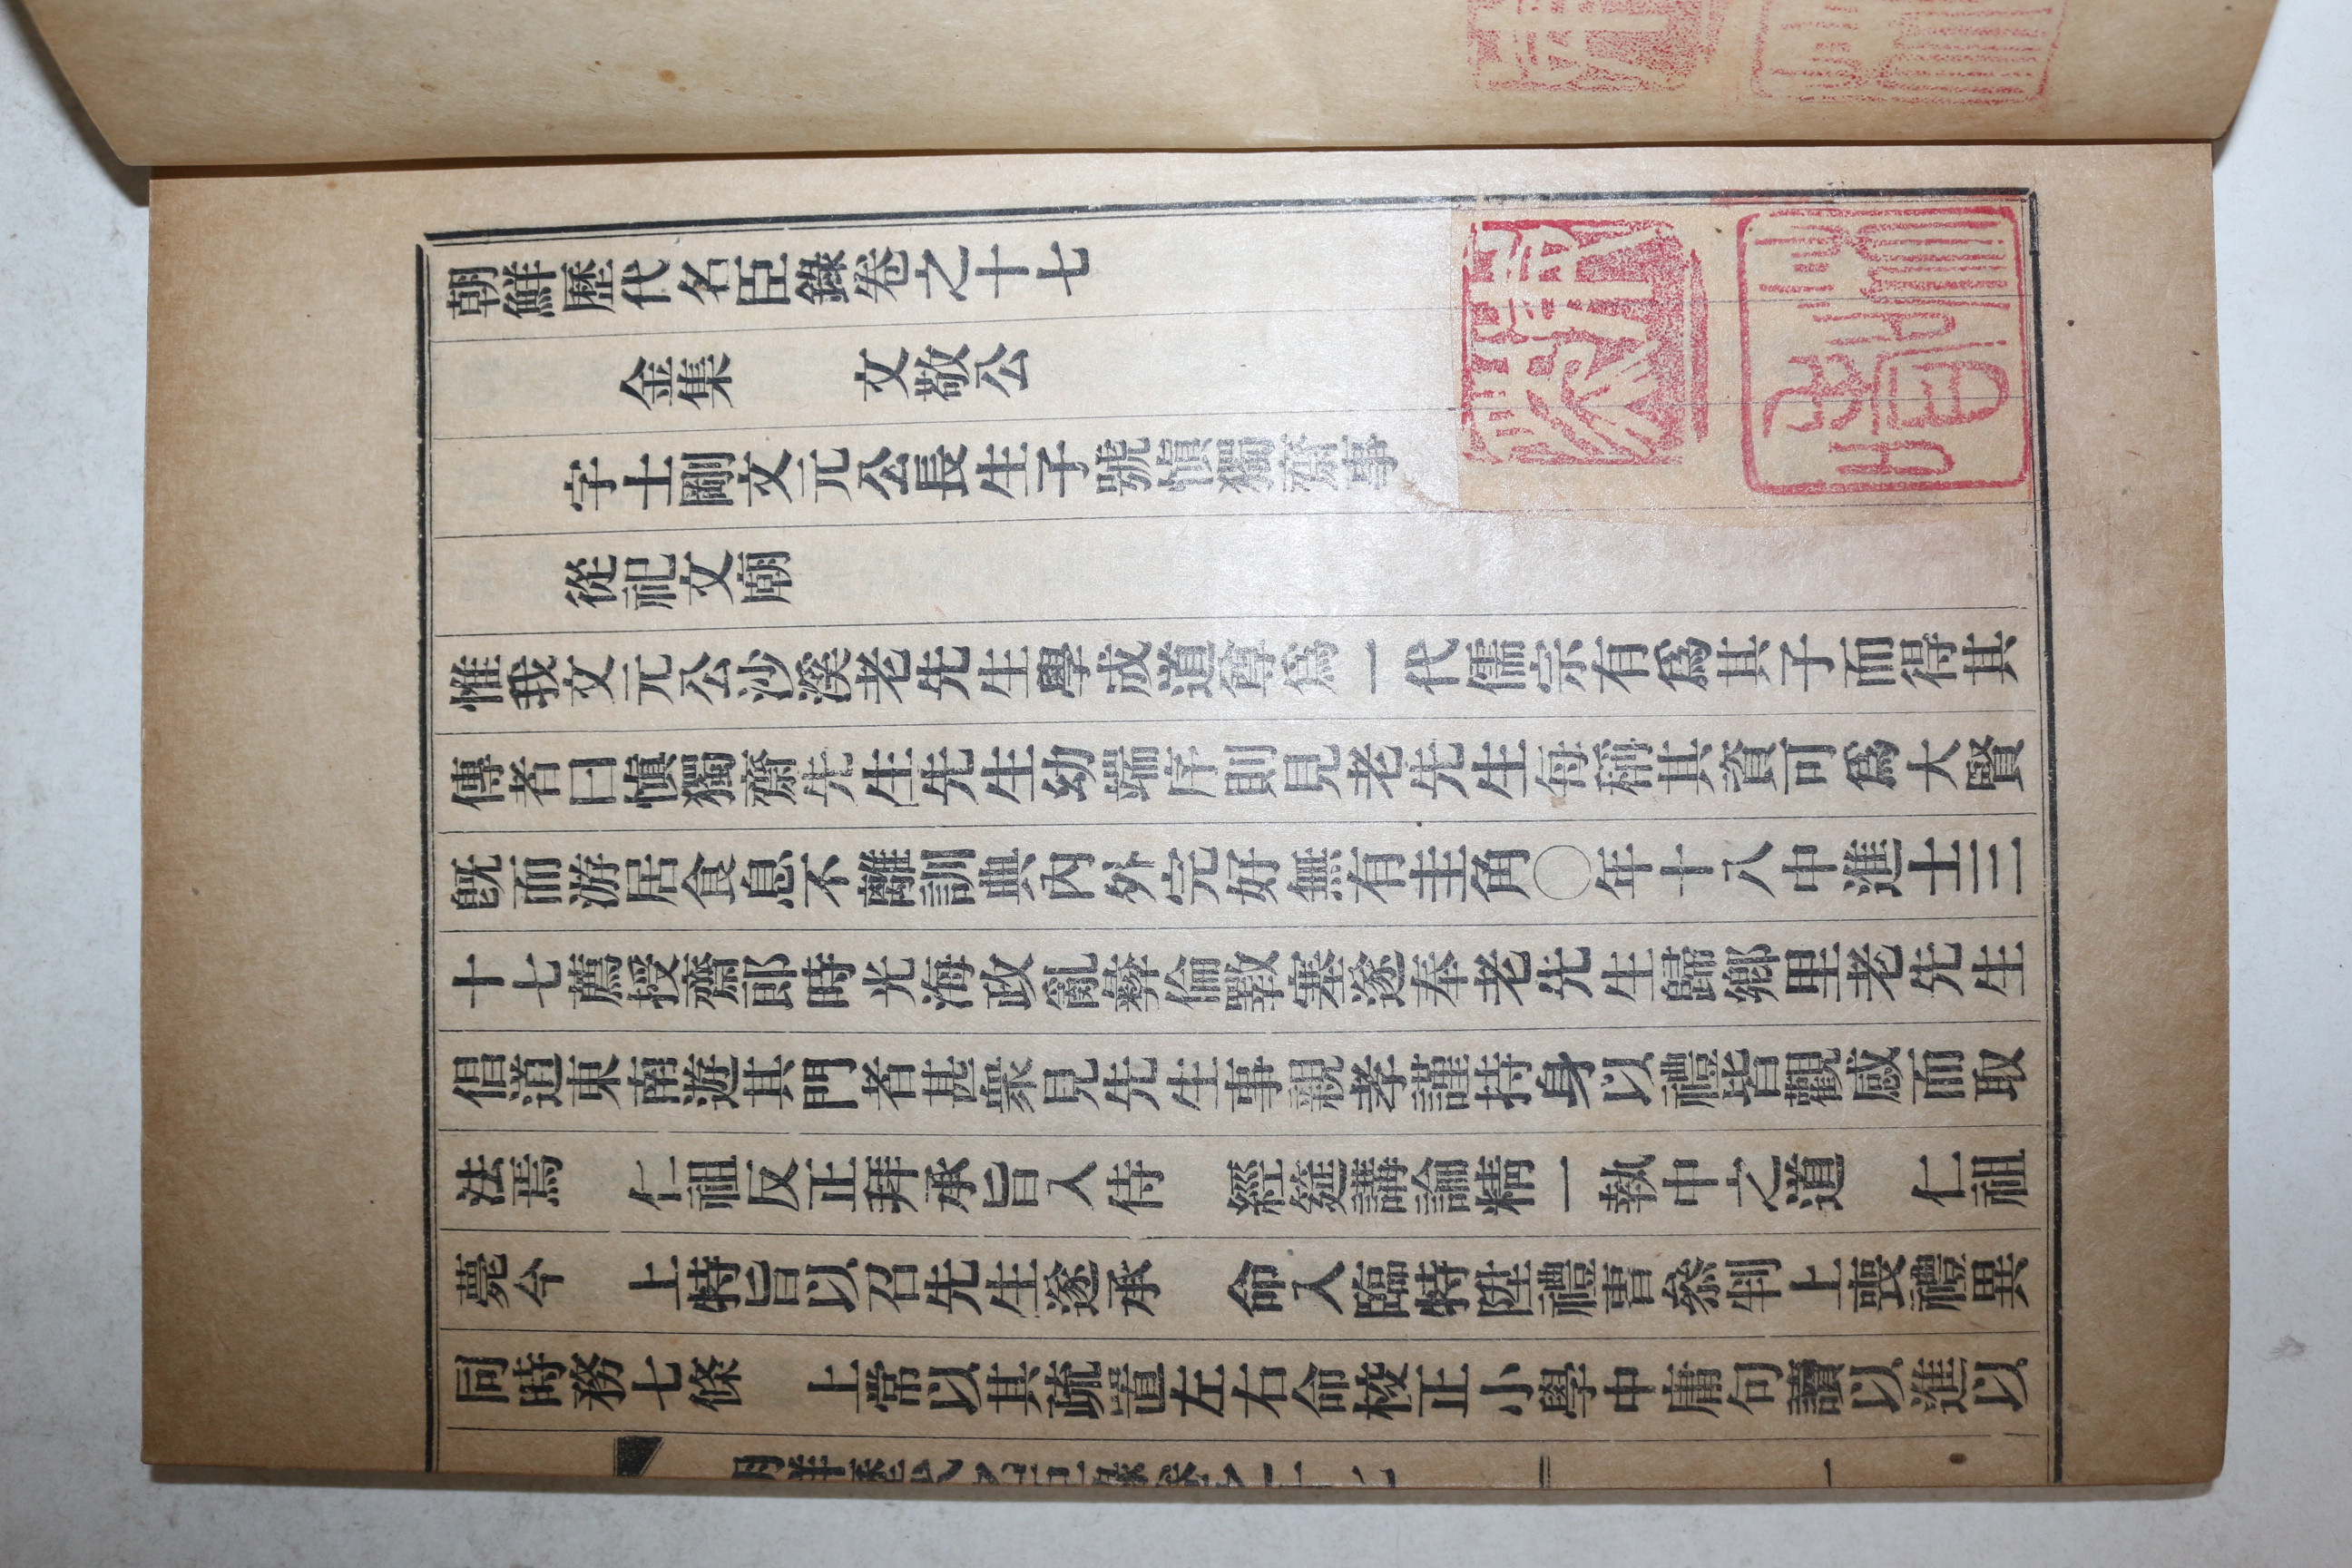 朝鮮歷代名臣錄卷之十七
金集　文敬公
字士剛文元公長生子號愼獨齋事
從祀文廟
惟我文元公沙溪老先生學成道尊爲一代儒宗有爲其子而得其
傳者曰愼獨齋先生先生幼端序則見老先生每稱其資可爲大賢
旣而游居食息不離訓典內外完好無有圭角〇年十八中進士三
十七薦授齋郎時光海政亂彝倫斁塞遂奉老先生歸鄉里老先生
倡道東南遊其門者甚衆見先生事親孝謹持身以禮皆觀感而取
法焉　仁祖反正拜承旨入侍　經筵講論精一執中之道　仁祖
薨今　上特旨以召先生遂承　命入臨特陞禮曹參判上喪禮異
同時務七條　上常以其疏置左右命校正小學中庸句讀以進以